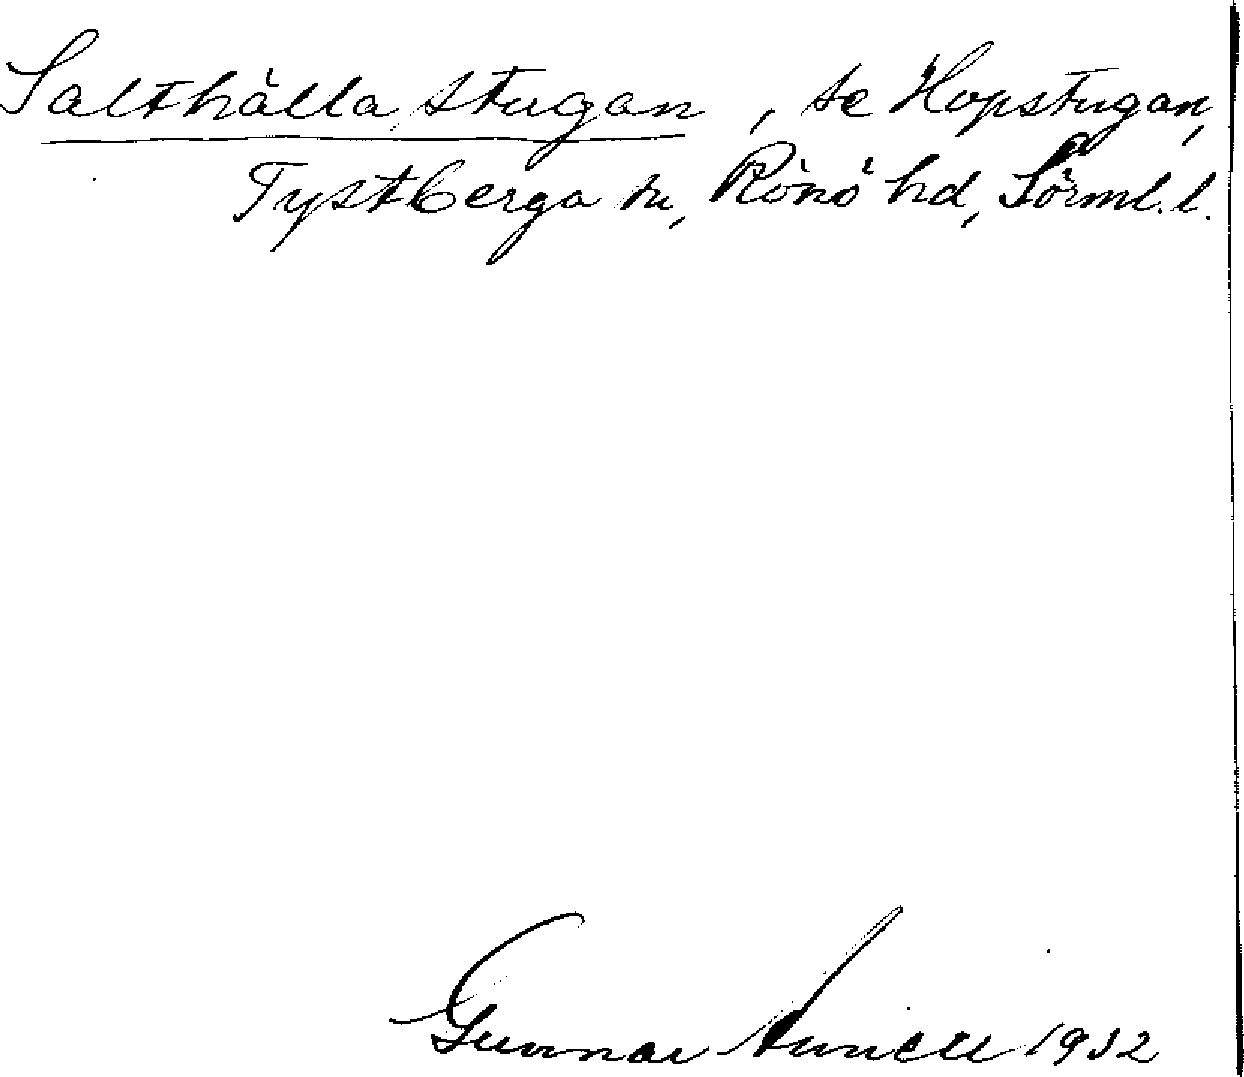 Salthälla stugan, se Hopstugan,
Tystberga sn, Rönö hd, Sörml. l.
Gunnar 1932